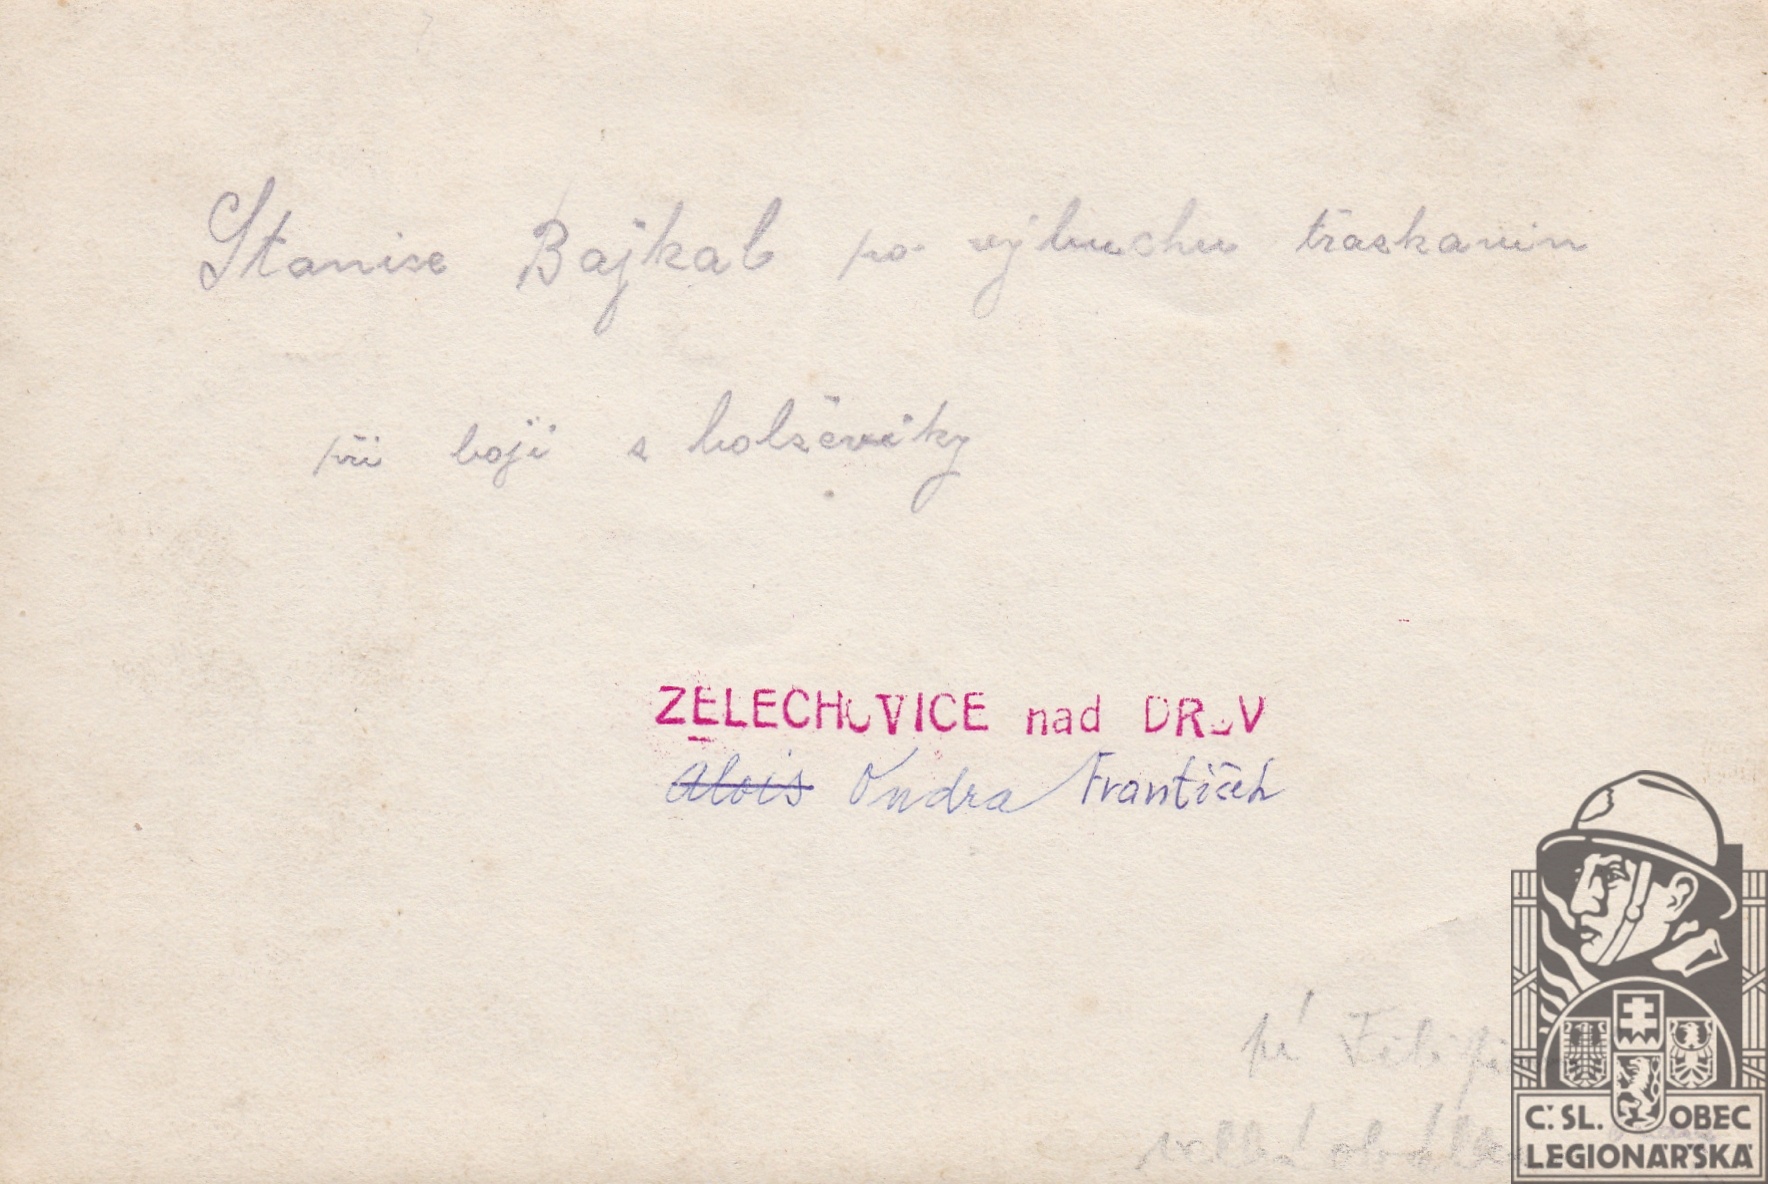 Stanise Bajkal po vyjbuchu třaskavin
při boji s bolševiky
ZELECHOVICE nad DŘEV
Alois Ondra František
pí
Č.SL. OBEC
LEGIONÁŘSKÁ